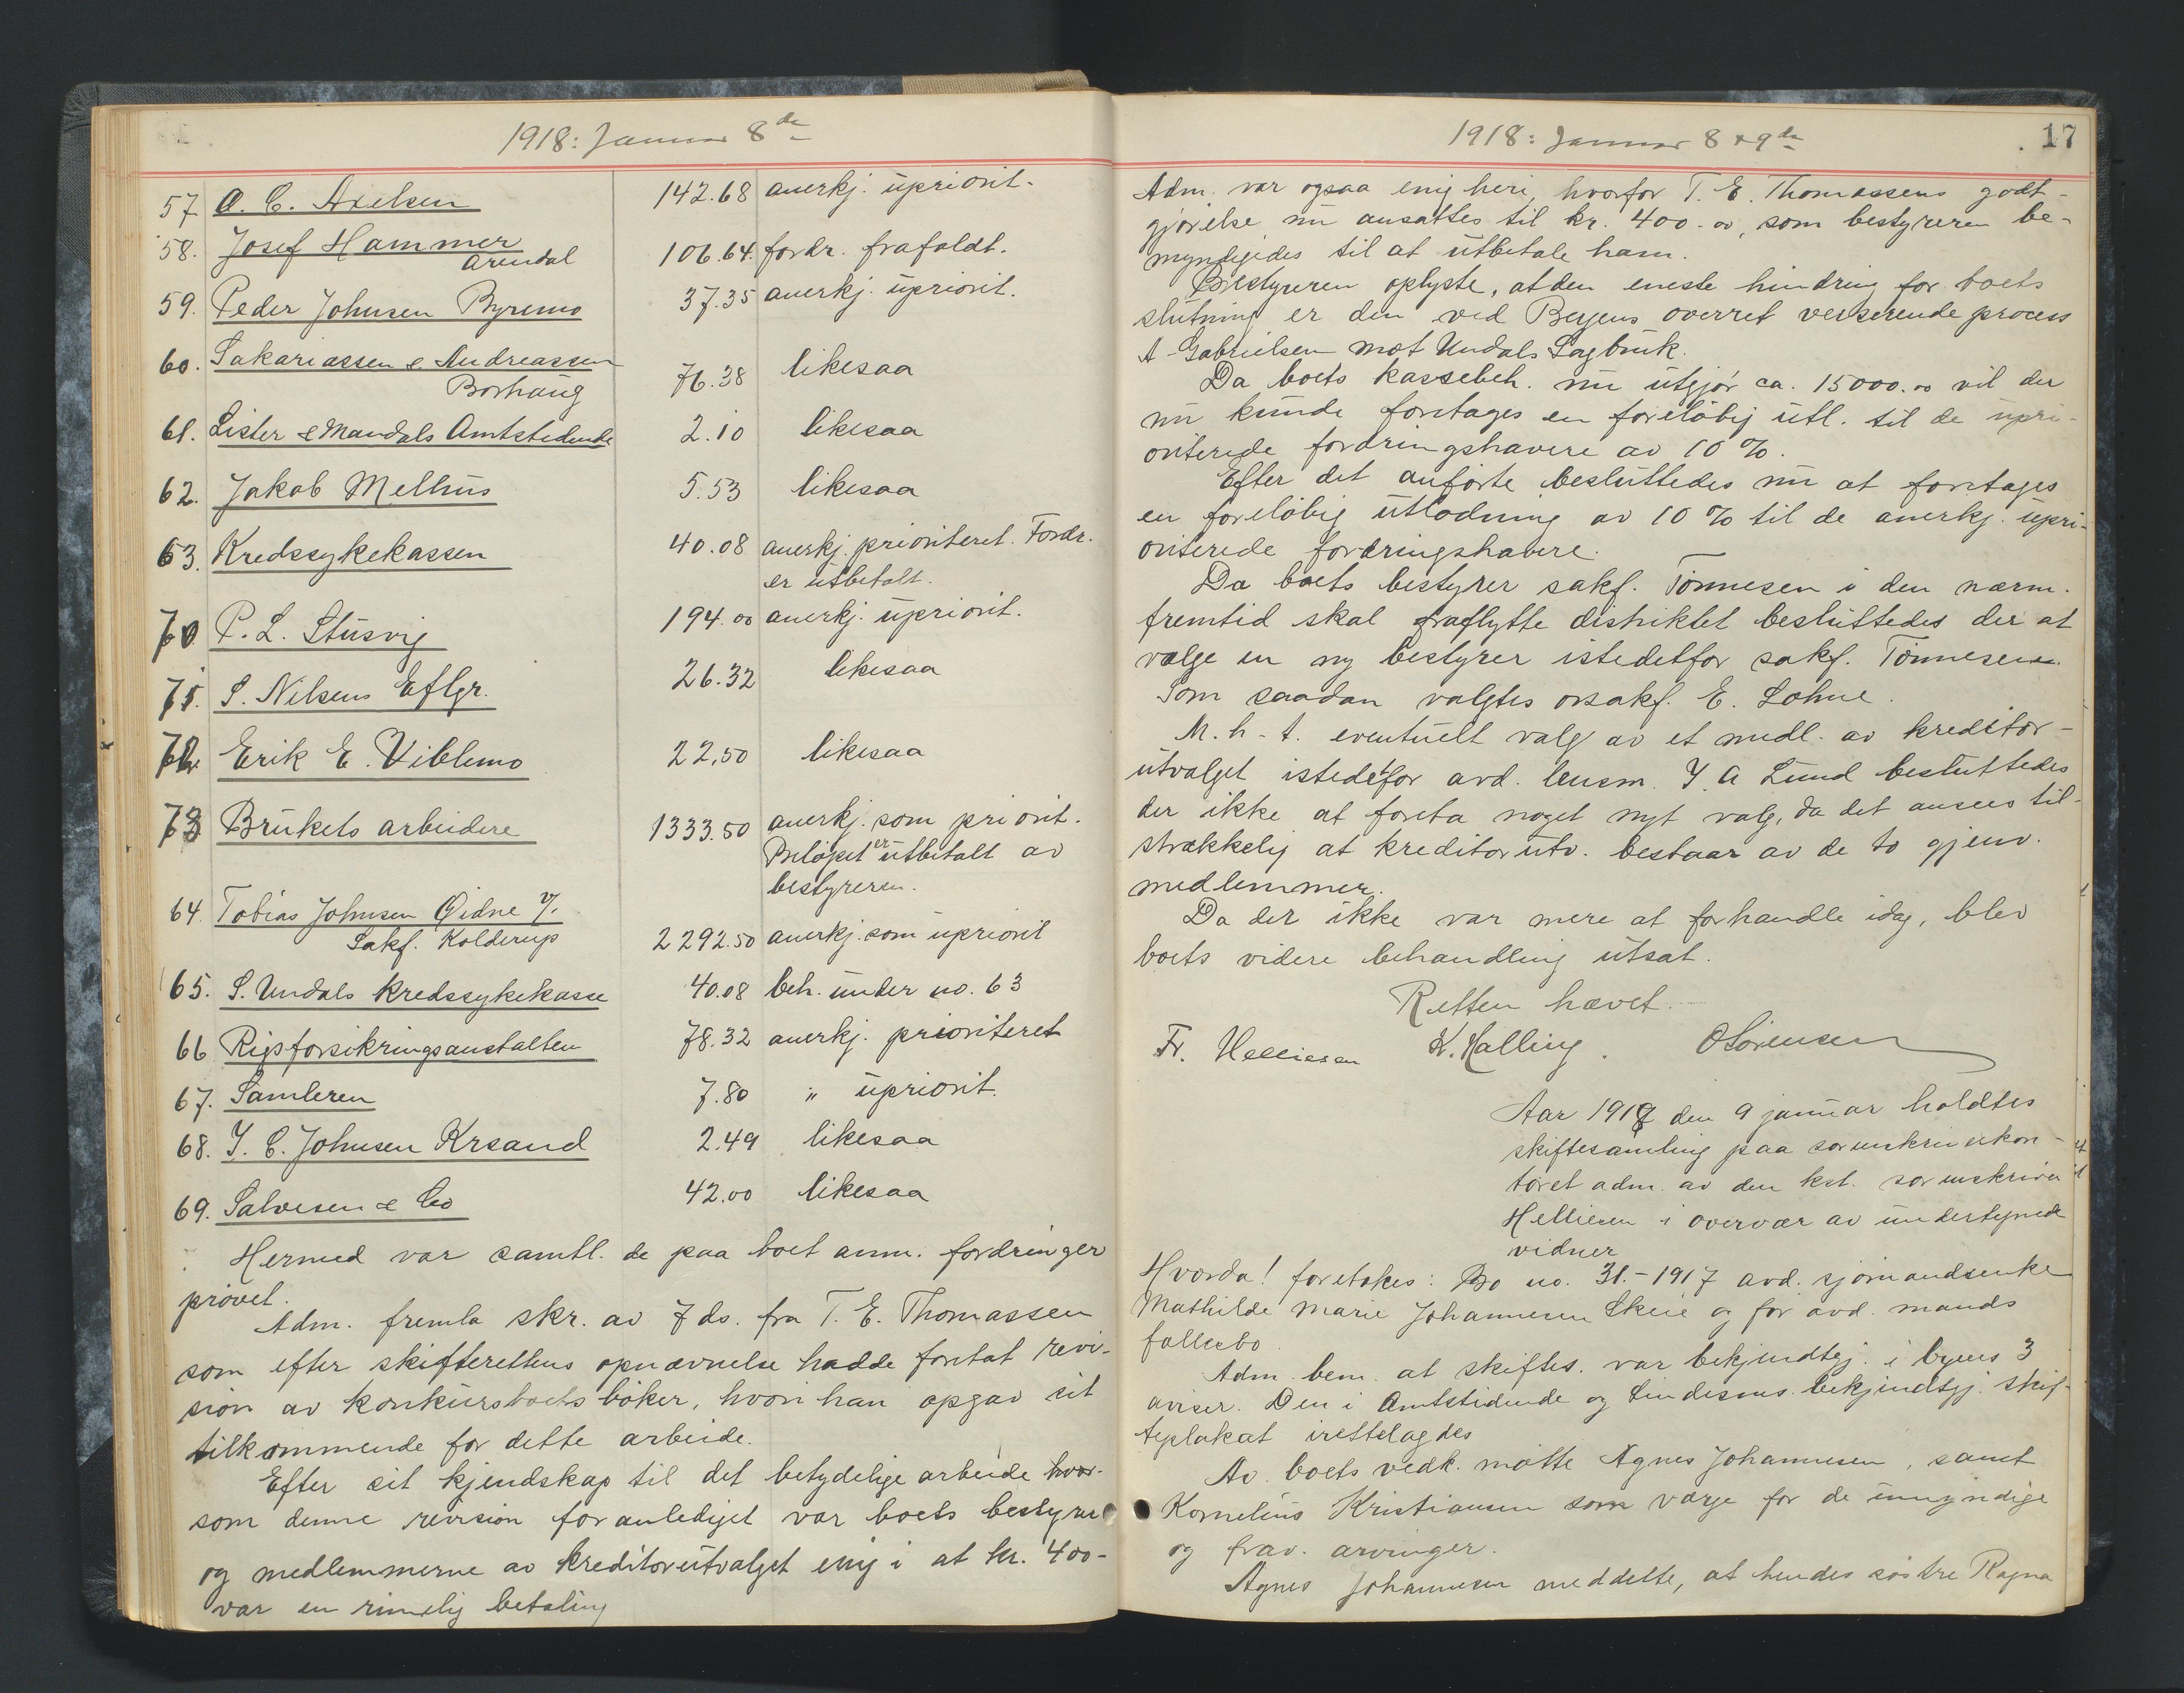 1918: Januar 8de
57 A. C. Axelsen 142.68 anerkj. upriorit.
58. Josef Hammer
Arendal 106.64. fordr. frafaldt.
59. Peder Johnsen Byremo 37.35 anerkj. upriorit.
60. Sakariassen & Andreassen
Borhaug 76.38 likesaa
61. Lister & Mandals Amtstidende 2.10 likesaa
62. Jakob Melhus 5.53 likesaa
63. Kredssykekassen 40.08 anerkj. prioriteret. Fordr.
er utbetalt.
70 P. L. Stusvig 194.00 anerkj. upriorit.
71. S. Nilsens Eflgr. 26.32 likesaa
72. Erik E. Viblemo 22,50 likesaa
73 Brukets arbeidere 1333.50 anerkj. som priorit.
Beløpet er utbetalt av
bestyreren.
64. Tobias Johnsen Øidne v/.
Sakf. Kolderup 2292.50 anerkj. som upriorit
65. S. Undals kredssykekasse 40.08 beh. under no. 63
66 Rigsforsikringsanstalten 78.32 anerkj. prioriteret
67. Samleren 7.80 " upriorit.
68. J. C. Johnsen Krsand 2.49 likesaa
69. Salvesen & Co 42.00 likesaa
Hermed var samtl. de paa boet anm. fordringer
prøvet.
Adm. fremla skr. av 7 ds. fra T. E. Thomassen
som efter skifterettens opnævnelse hadde foretat revi-
sion av konkursboets bøker, hvori han opgav sit
tilkommende for dette arbeide.
Efter sit kjendskap til det betydelige arbeide hvor-
som denne revision foranlediget var boets bestyrer
og medlemmerne av kreditorutvalget enig i at kr. 400-
var en rimelig betaling
1918: Januar 8 & 9de
17
Adm. var ogsaa enig heri, hvorfor T. E. Thomassens godt-
gjørelse nu ansattes til kr. 400.00, som bestyreren be-
myndigedes til at utbetale ham.
Bestyreren oplyste, at den eneste hindring for boets
slutning er den ved Bergens overret verserende process
A. Gabrielsen mot Undals Sagbruk.
Da boets kassebeh. nu utgjør ca. 15000.00 vil der
nu kunde foretages en foreløbig utl. til de upri-
oriterede fordringshavere av 10 %.
Efter det anførte besluttedes nu at foretages
en foreløbig utlodning av 10 % til de anerkj. upri-
oriterede fordringshavere.
Da boets bestyrer sakf. Tønnesen i den nærm.
fremtid skal fraflytte distriktet besluttedes der at
vælge en ny bestyrer istedetfor sakf. Tønnesen.
Som saadan valgtes orsakf. E. Lohne.
M. h. t. eventuelt valg av et medl. av kreditor-
utvalget istedetfor avd. lensm. J. A Lund besluttedes
der ikke at foreta noget nyt valg, da det ansees til-
strækkelig at kreditorutv. bestaar av de to gjenv.
medlemmer.
Da der ikke var mere at forhandle idag, blev
boets videre behandling utsat.
Retten hævet.
Fr. Helliesen K. Halling. O Sørensen
Aar 1918 den 9 januar holdtes
skiftesamling paa sorenskriverkon-
toret adm. av den kst. sorenskriver
Helliesen i overvær av undertegnede
vidner
Hvorda! foretokes: Bo no. 31.-1917 avd. sjømandsenke
Mathilde Marie Johannesen Skeie og før avd. mands
fællesbo.
Adm. bem. at skiftes. var bekjendtgj. i byens 3
aviser. Den i Amtstidende og Lindesnes bekjendtgj. skif-
teplakat irettelagdes
Av boets vedk. møtte Agnes Johannesen, samt
Kornelius Kristiansen som værge for de umyndige
og frav. arvinger.
Agnes Johannesen meddelte, at hendes søstre Ragna